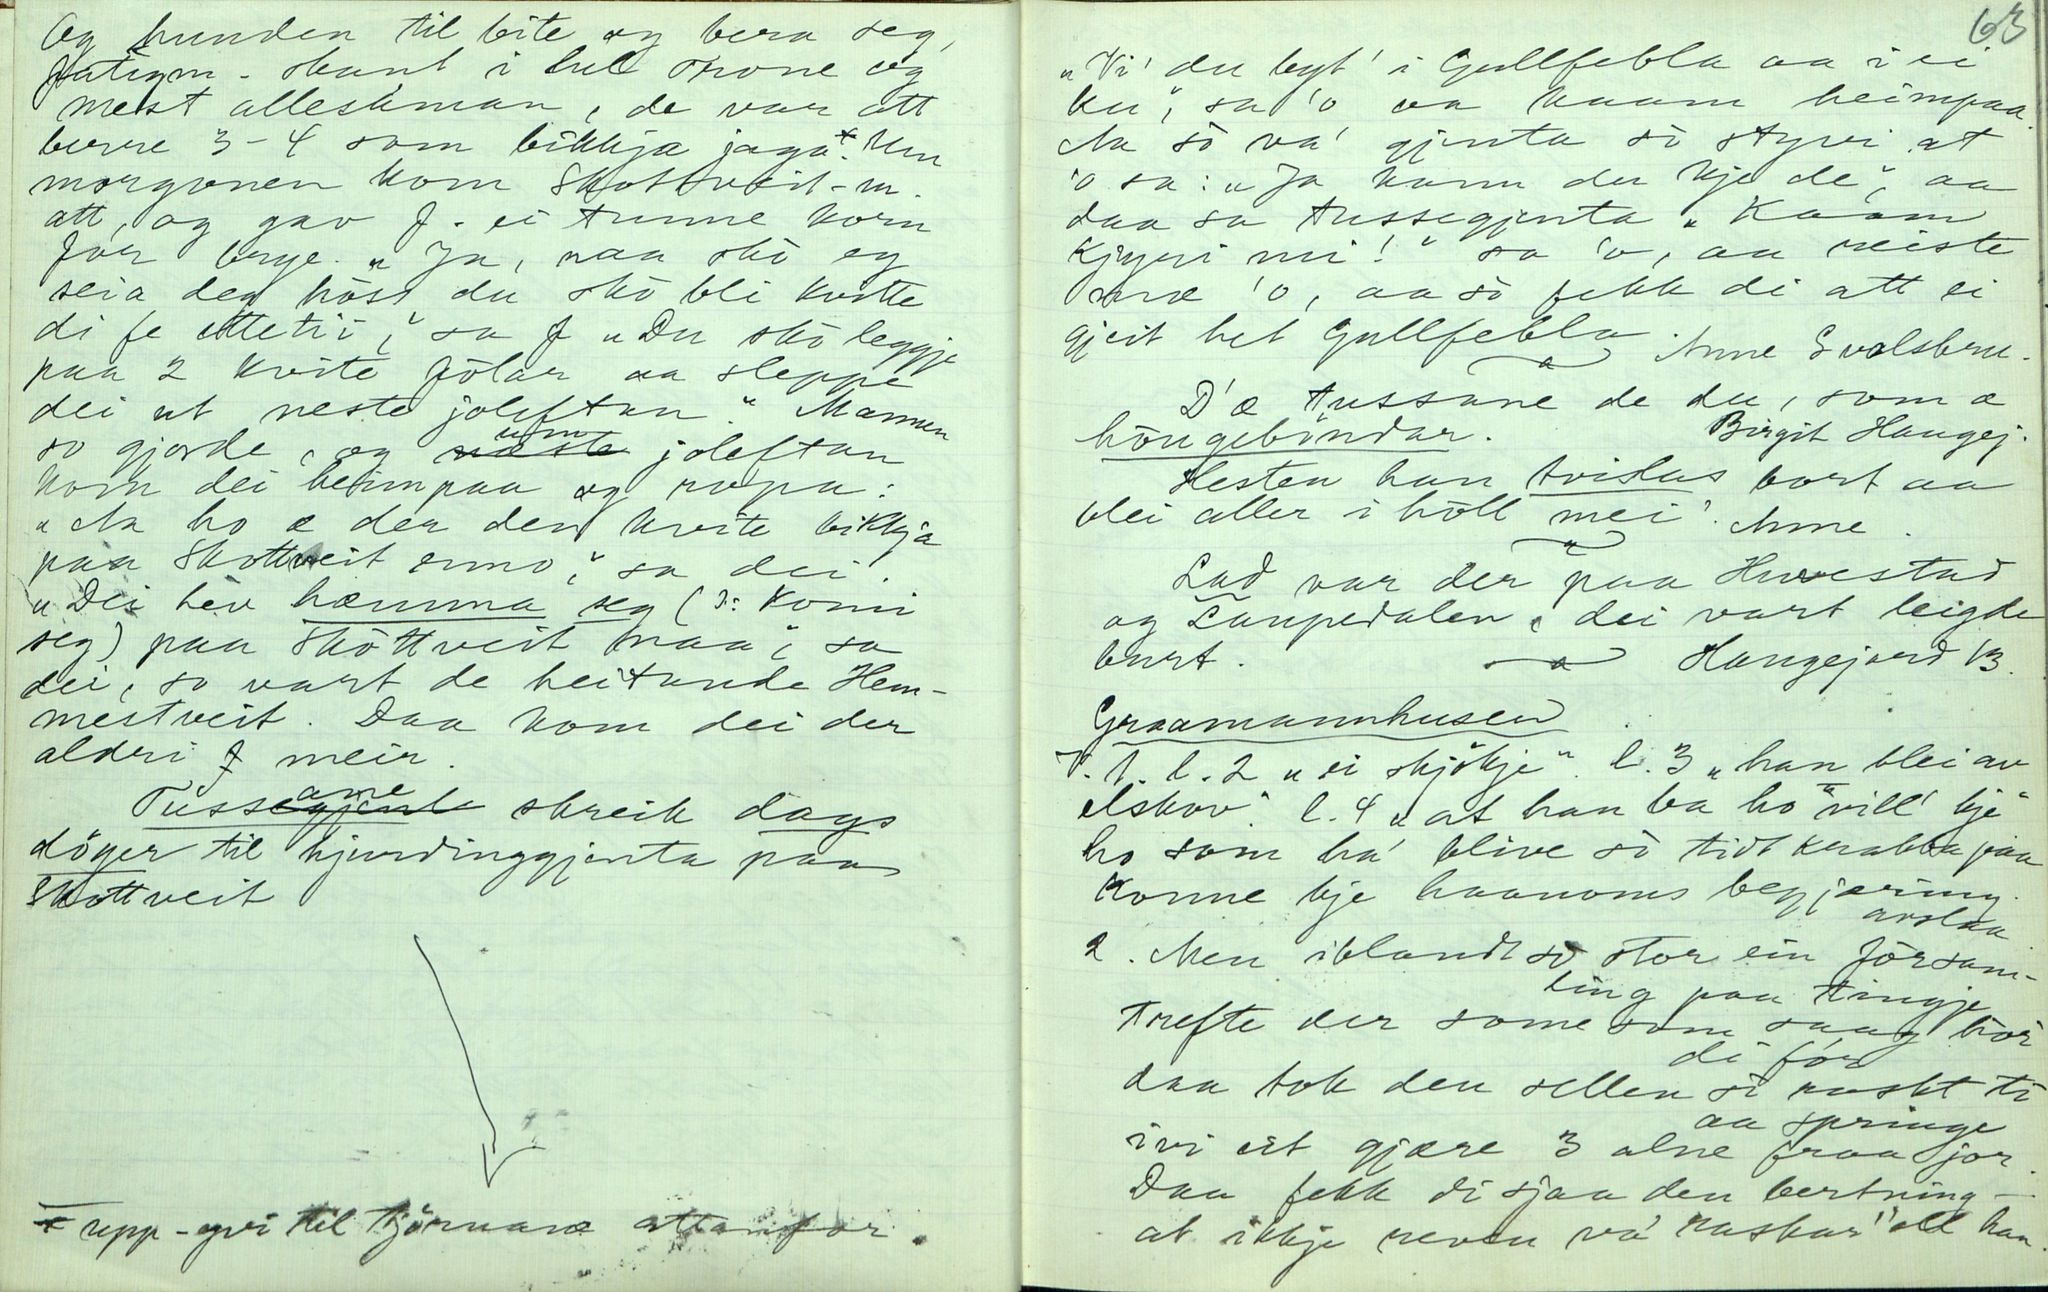 og hunden til bite og bera seg,
Jutegm. skant i hel sine og
mest alleshman, de var att
berre 3-4 som bikkja jaga+. Um
morgonen kom Skottveit-m.
att, og gav J. ei tunne korn
for berge. „Ja, naa skò eg
seia deg hòss du skò bli kvitte
di fe ettetiì," sa J „Du skò leggje
paa 2 kvite fòlar aa sleppe
dei ut neste joleftan." Mannen
so gjorde, og um joleftan
kom dei heimpaa og ropa:
„Aa ho æ der den kvite bikkja
paa Skottveit enno," sa dei.
„Dei hev hæmma seg (ɔ: komi
seg) paa Skòttveit naa," sa
dei, so vart de heitande Hem-
mestveit. Daa kom dei der
aldri meir.
Tussane skreik dags
döger til hjuringgjenta paa
Skottveit
+ upp-yvi til tjörnane attanfor.
63
„Vi' du byt' i Gullfebla aa i ei
ku," sa 'o aa kaam heimpaa.
Aa sò va' gjenta sò styvi at
'o sa: „Ja kann du kje de", aa
daa sa tussegjenta „Kaam
kjyri mi!" sa 'o, aa reiste
mæ 'o, aa sò fekk di att ei
gjeit het Gullfebla. Anne Svalsbru.
D'æ tussane de du, som æ
höugeböndar. Birgit Haugej.
Hesten han tvistas bort aa
blei aller i höll mei'. Anne.
Lad var der paa Hvestad
og Laupedalen, dei vart leigde
burt. Haugejord B.
Graamannhusen
V. 1. l. 2 „ei skjökje". l. 3 „han blei av
elskov". l. 4 „at han ba ho „vill' kje"
ho som ha' blive sò tidt krabba paa
konne kje haanoms begjæring
avslaa.
2. Men iblandt sò stor ein försam-
ling paa tingje
trefte der some som saag hòr
di fór
daa tok den sellen sò raskt ti
aa springe
ivi eit gjære 3 alne fraa jor.
Daa fekk di sjaa den bertning –
at ikkje reven va' raskar' ell han.